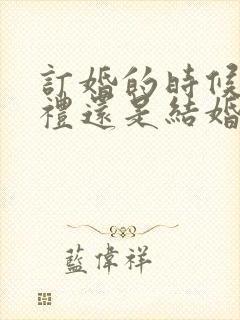 訂婚的時候
禮還是結婚
藍偉祥